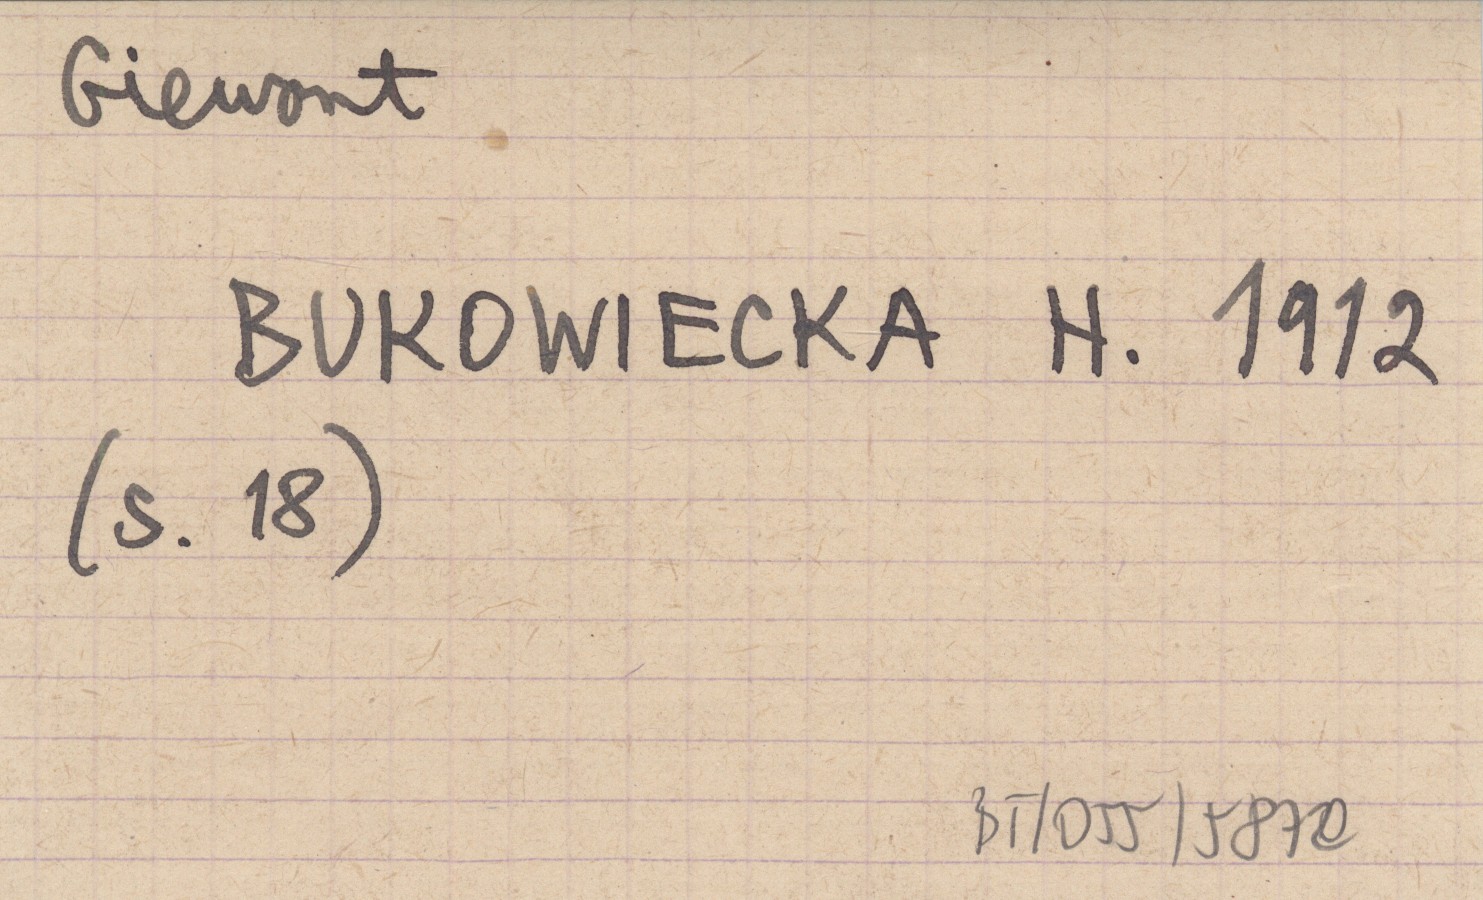 Giewont
BUKOWIECKA H. 1912
(s. 18)
BT/055/5870